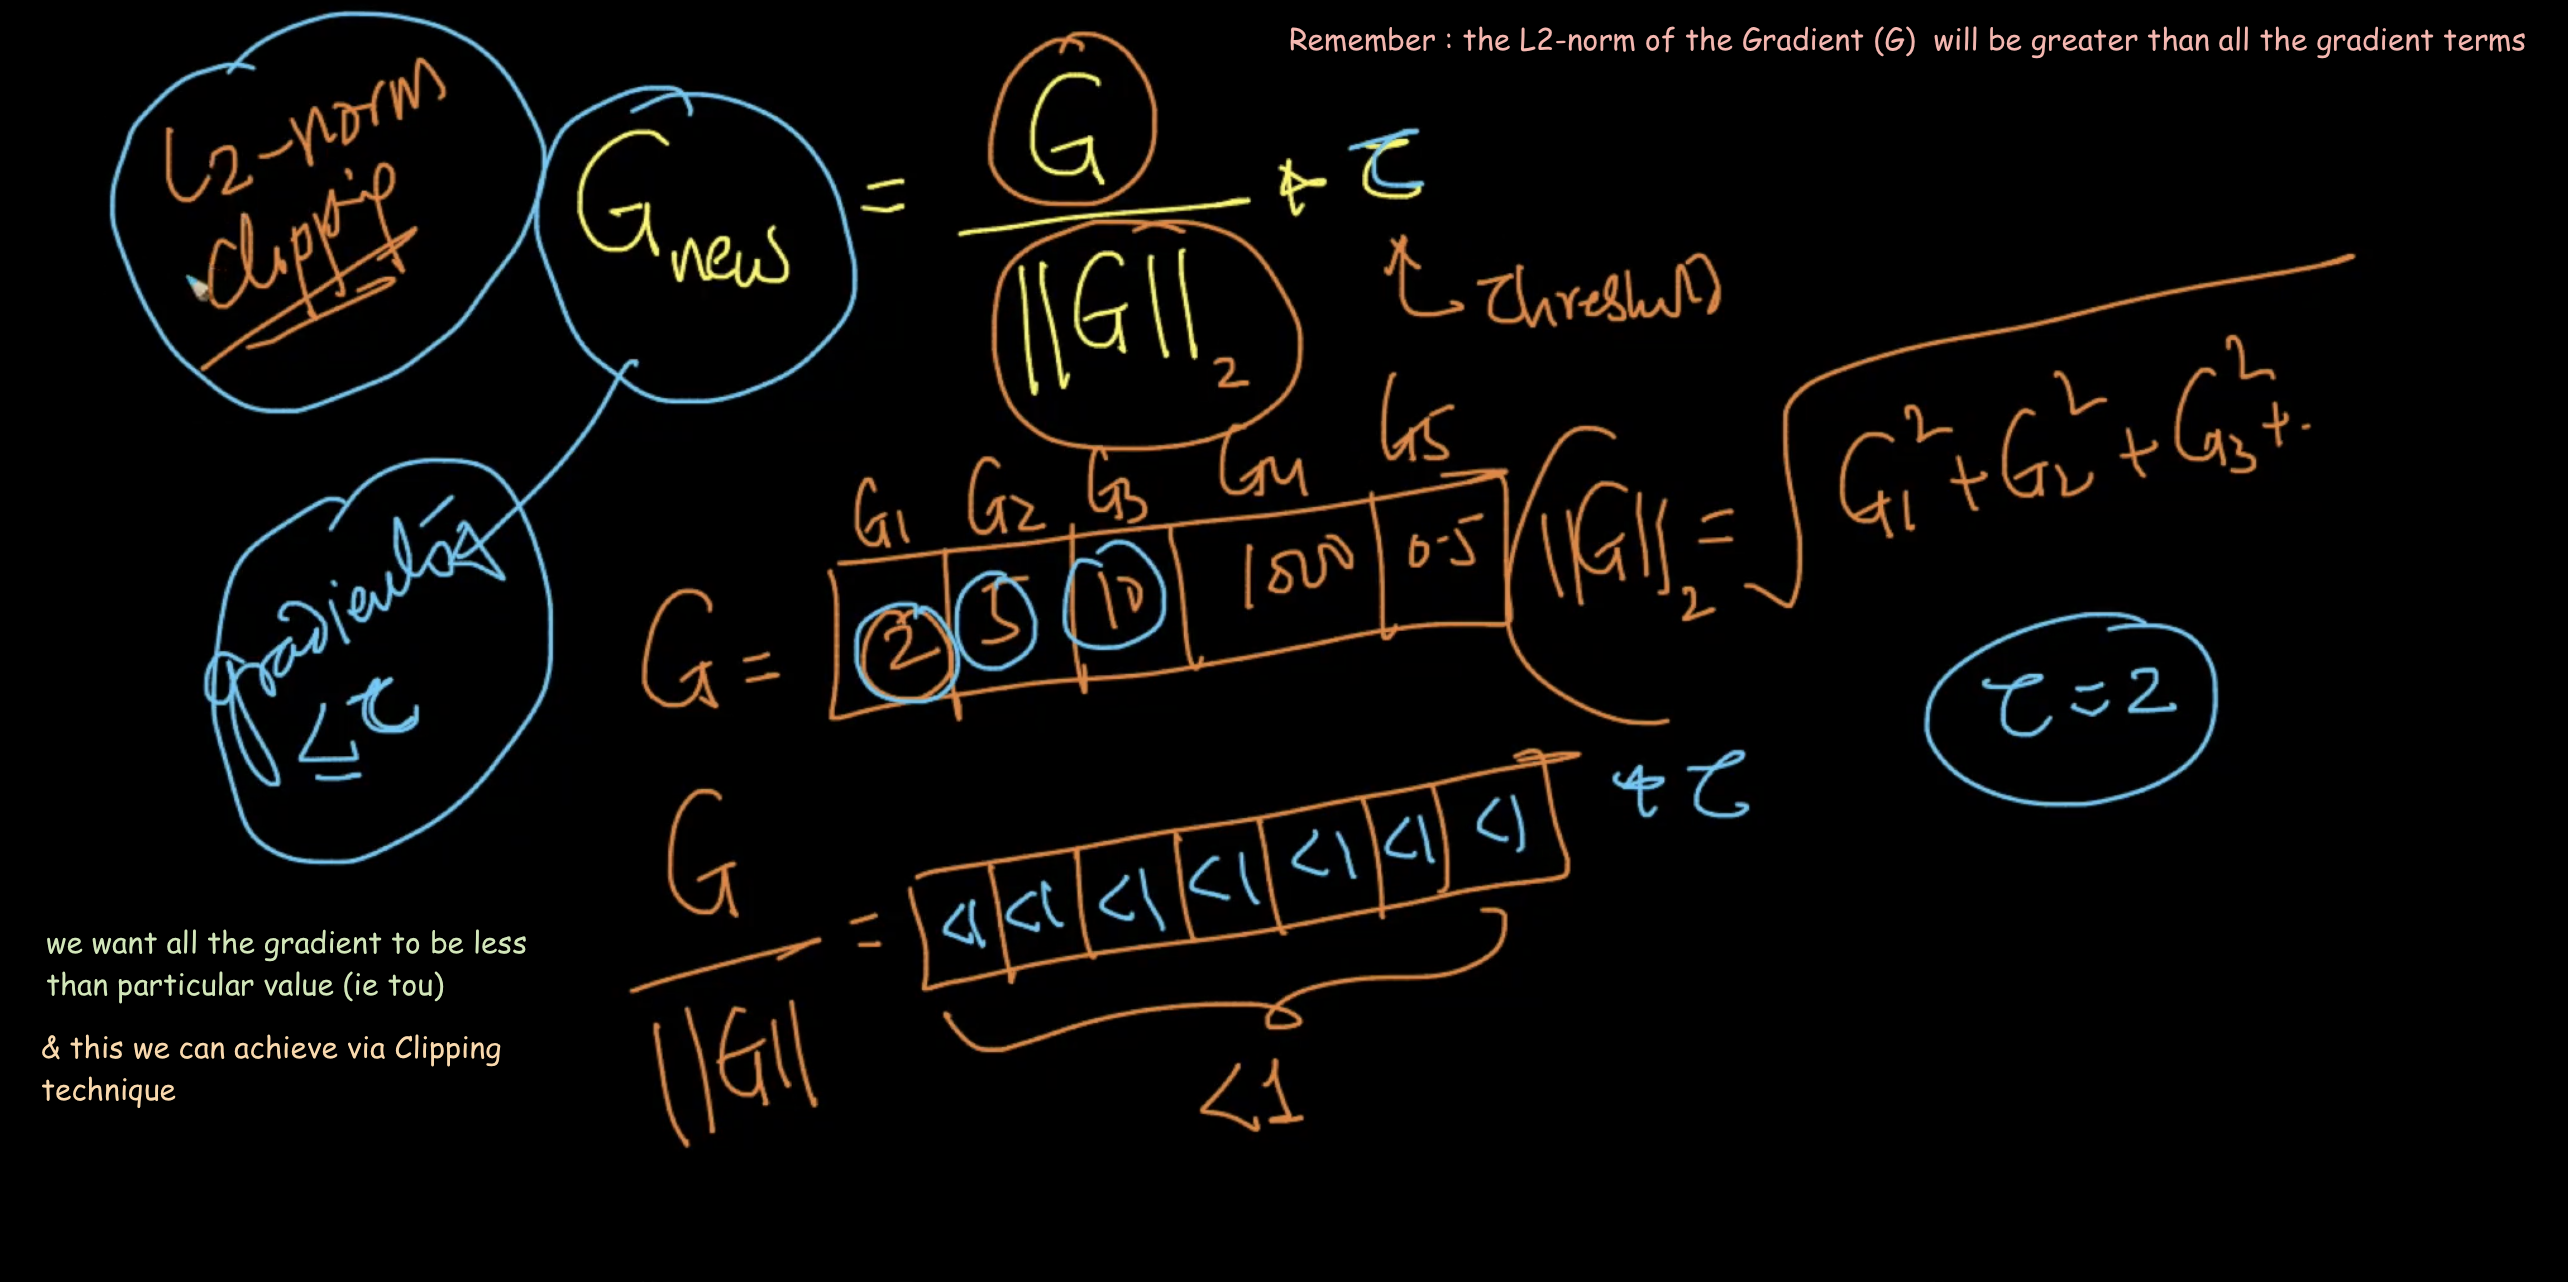 Remember : the L2-norm of the Gradient (G) will be greater than all the gradient terms
L2-norm
clipping
G new = G / ||G||2 * τ
Threshold
G1 G2 G3 G4 G5
G = 2 5 10 1000 0.5
||G||2 = √ G1² + G2² + G3² + .
gradients
≤ τ
τ = 2
G / ||G|| = <1 <1 <1 <1 <1 <1 <1 * τ
<1
we want all the gradient to be less
than particular value (ie tou)
& this we can achieve via Clipping
technique